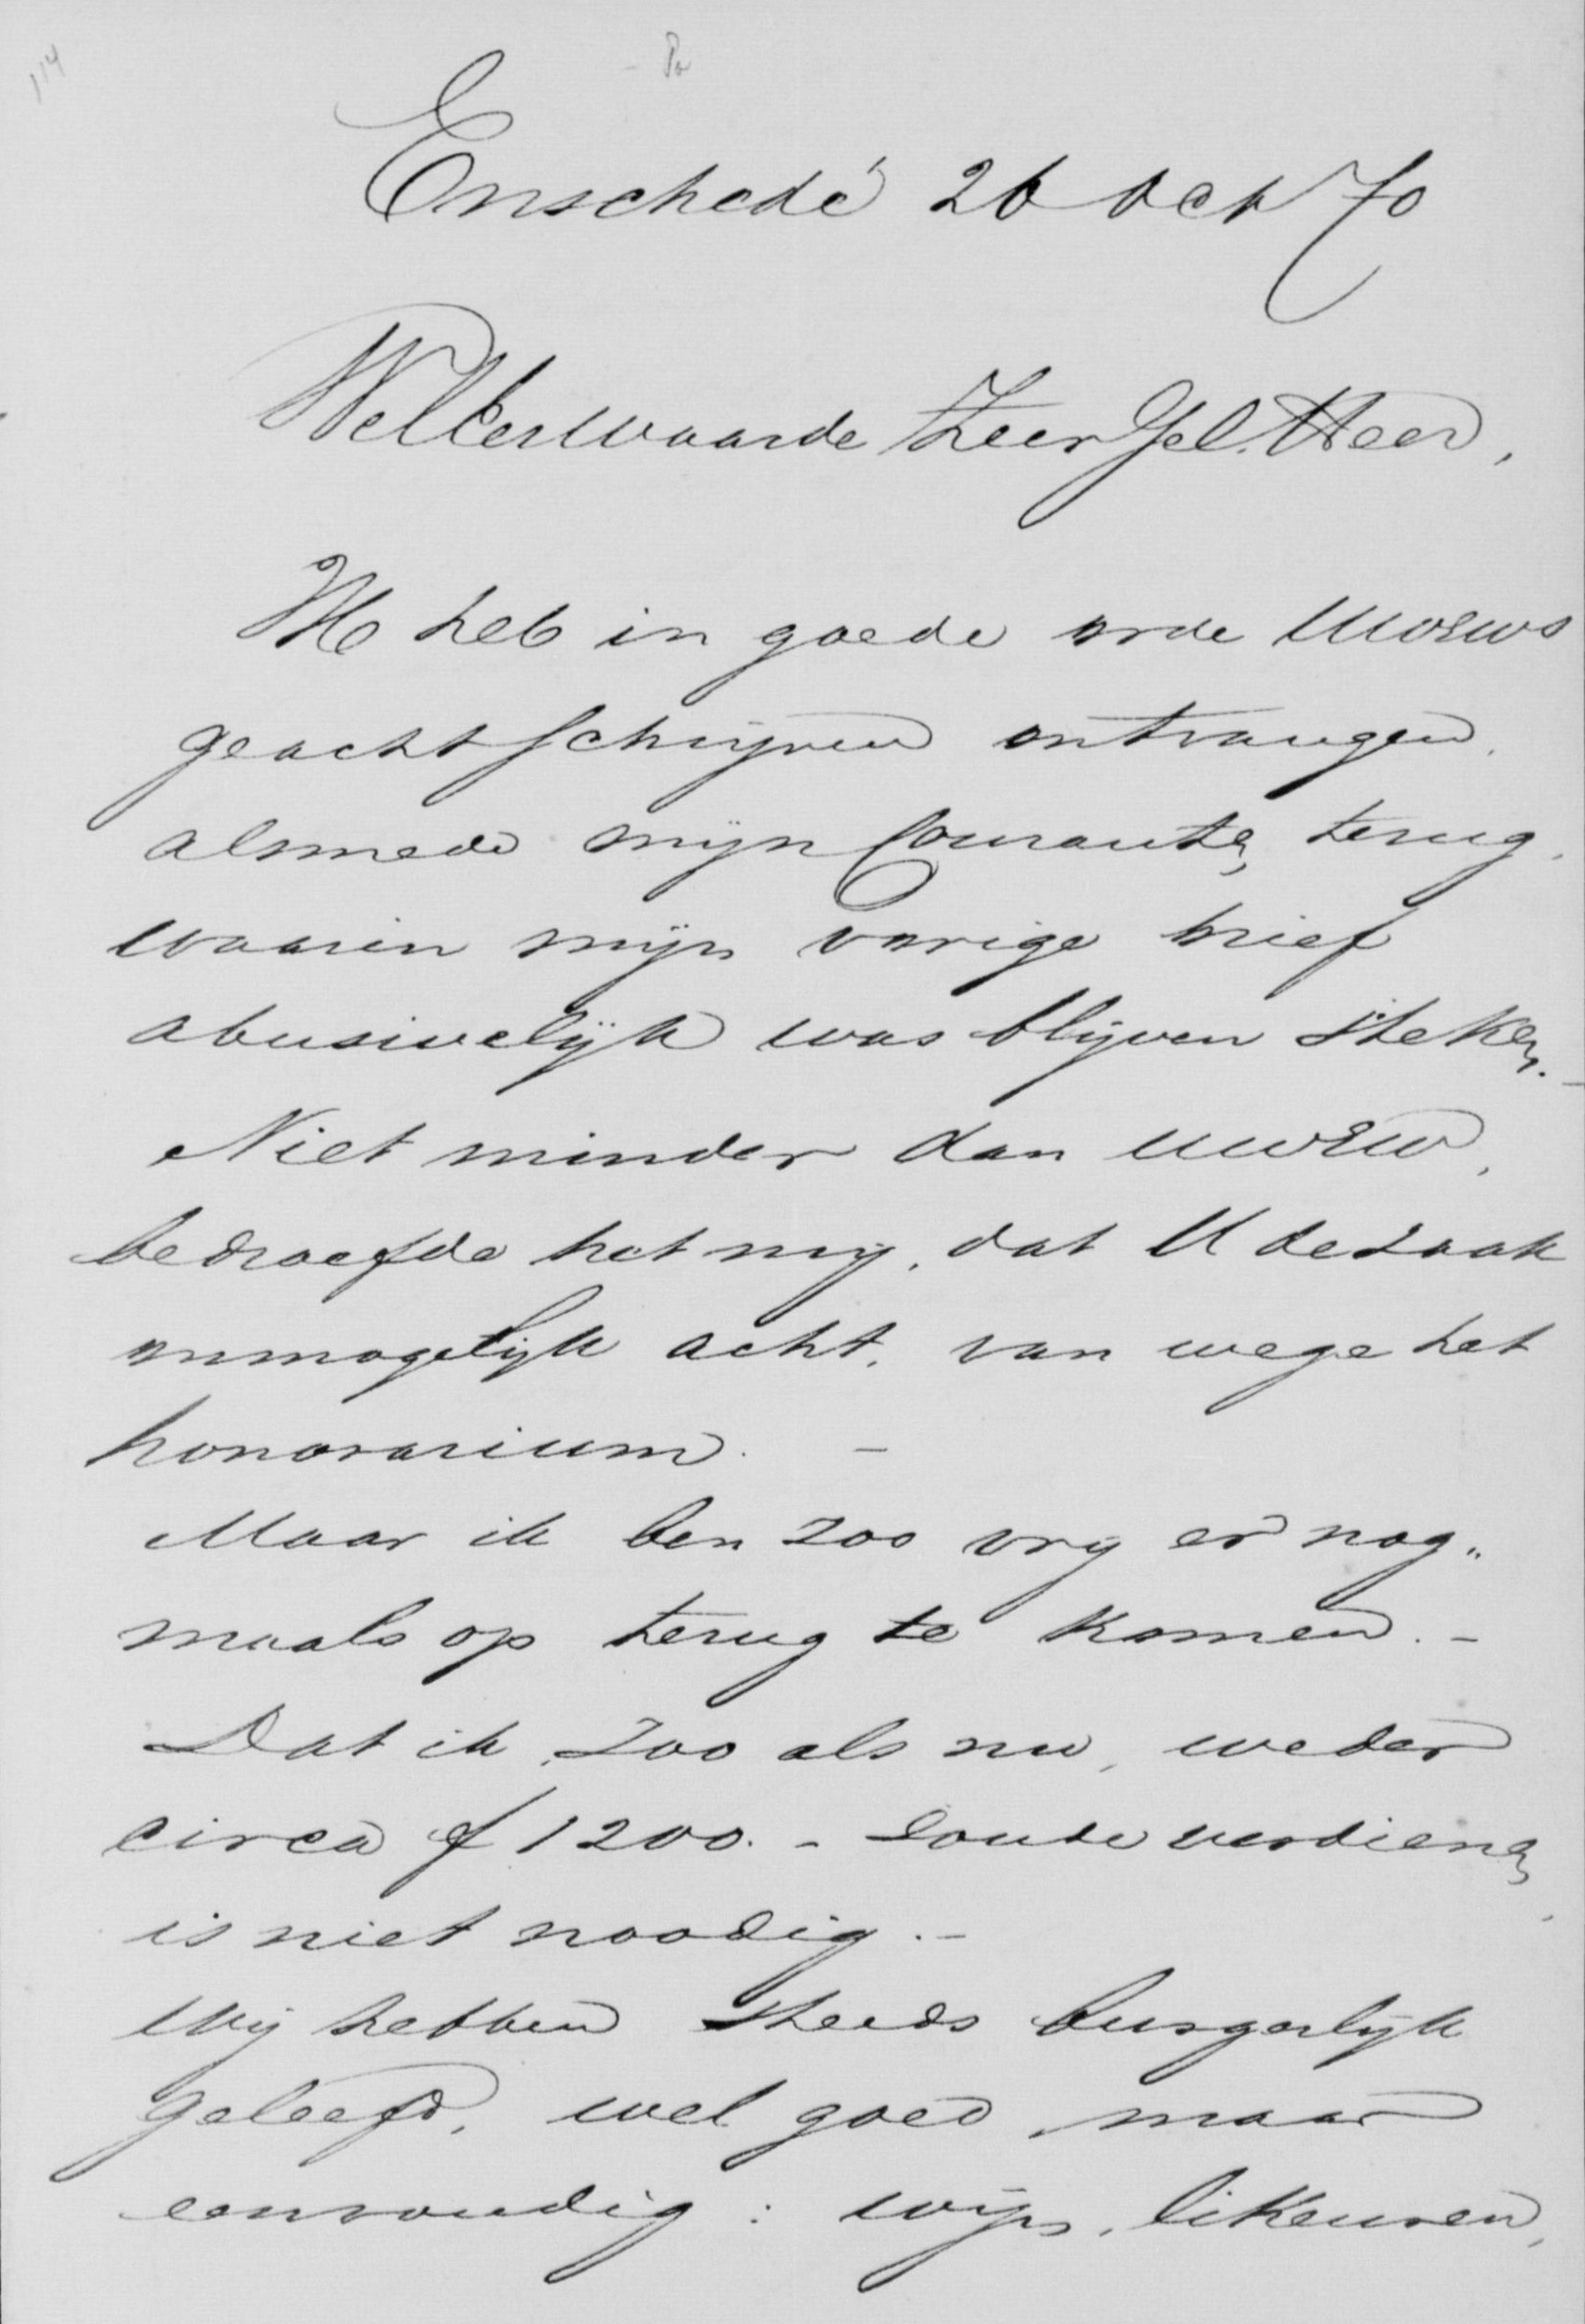 114
Enschedé 26 Oct 70
WelEerwaarde Zeer Gel. Heer,
Ik heb in goede orde UwEws
geacht schrijven ontvangen,
alsmede mijn Couranten terug,
waarin mijn vorige brief
abusivelijk was blijven steken. -
Niet minder dan UwEw,
bedroefde het mij, dat U de zaak
onmogelijk acht, van wege het
honorarium. -
Maar ik ben zoo vrij er nog„
maals op terug te komen. -
Dat ik, zoo als nu, weder
circa ƒ 1200. - zoude verdienen
is niet noodig. -
Wij hebben steeds burgerlijk
geleefd, wel goed, maar
eenvoudig: wijn, likeuren,